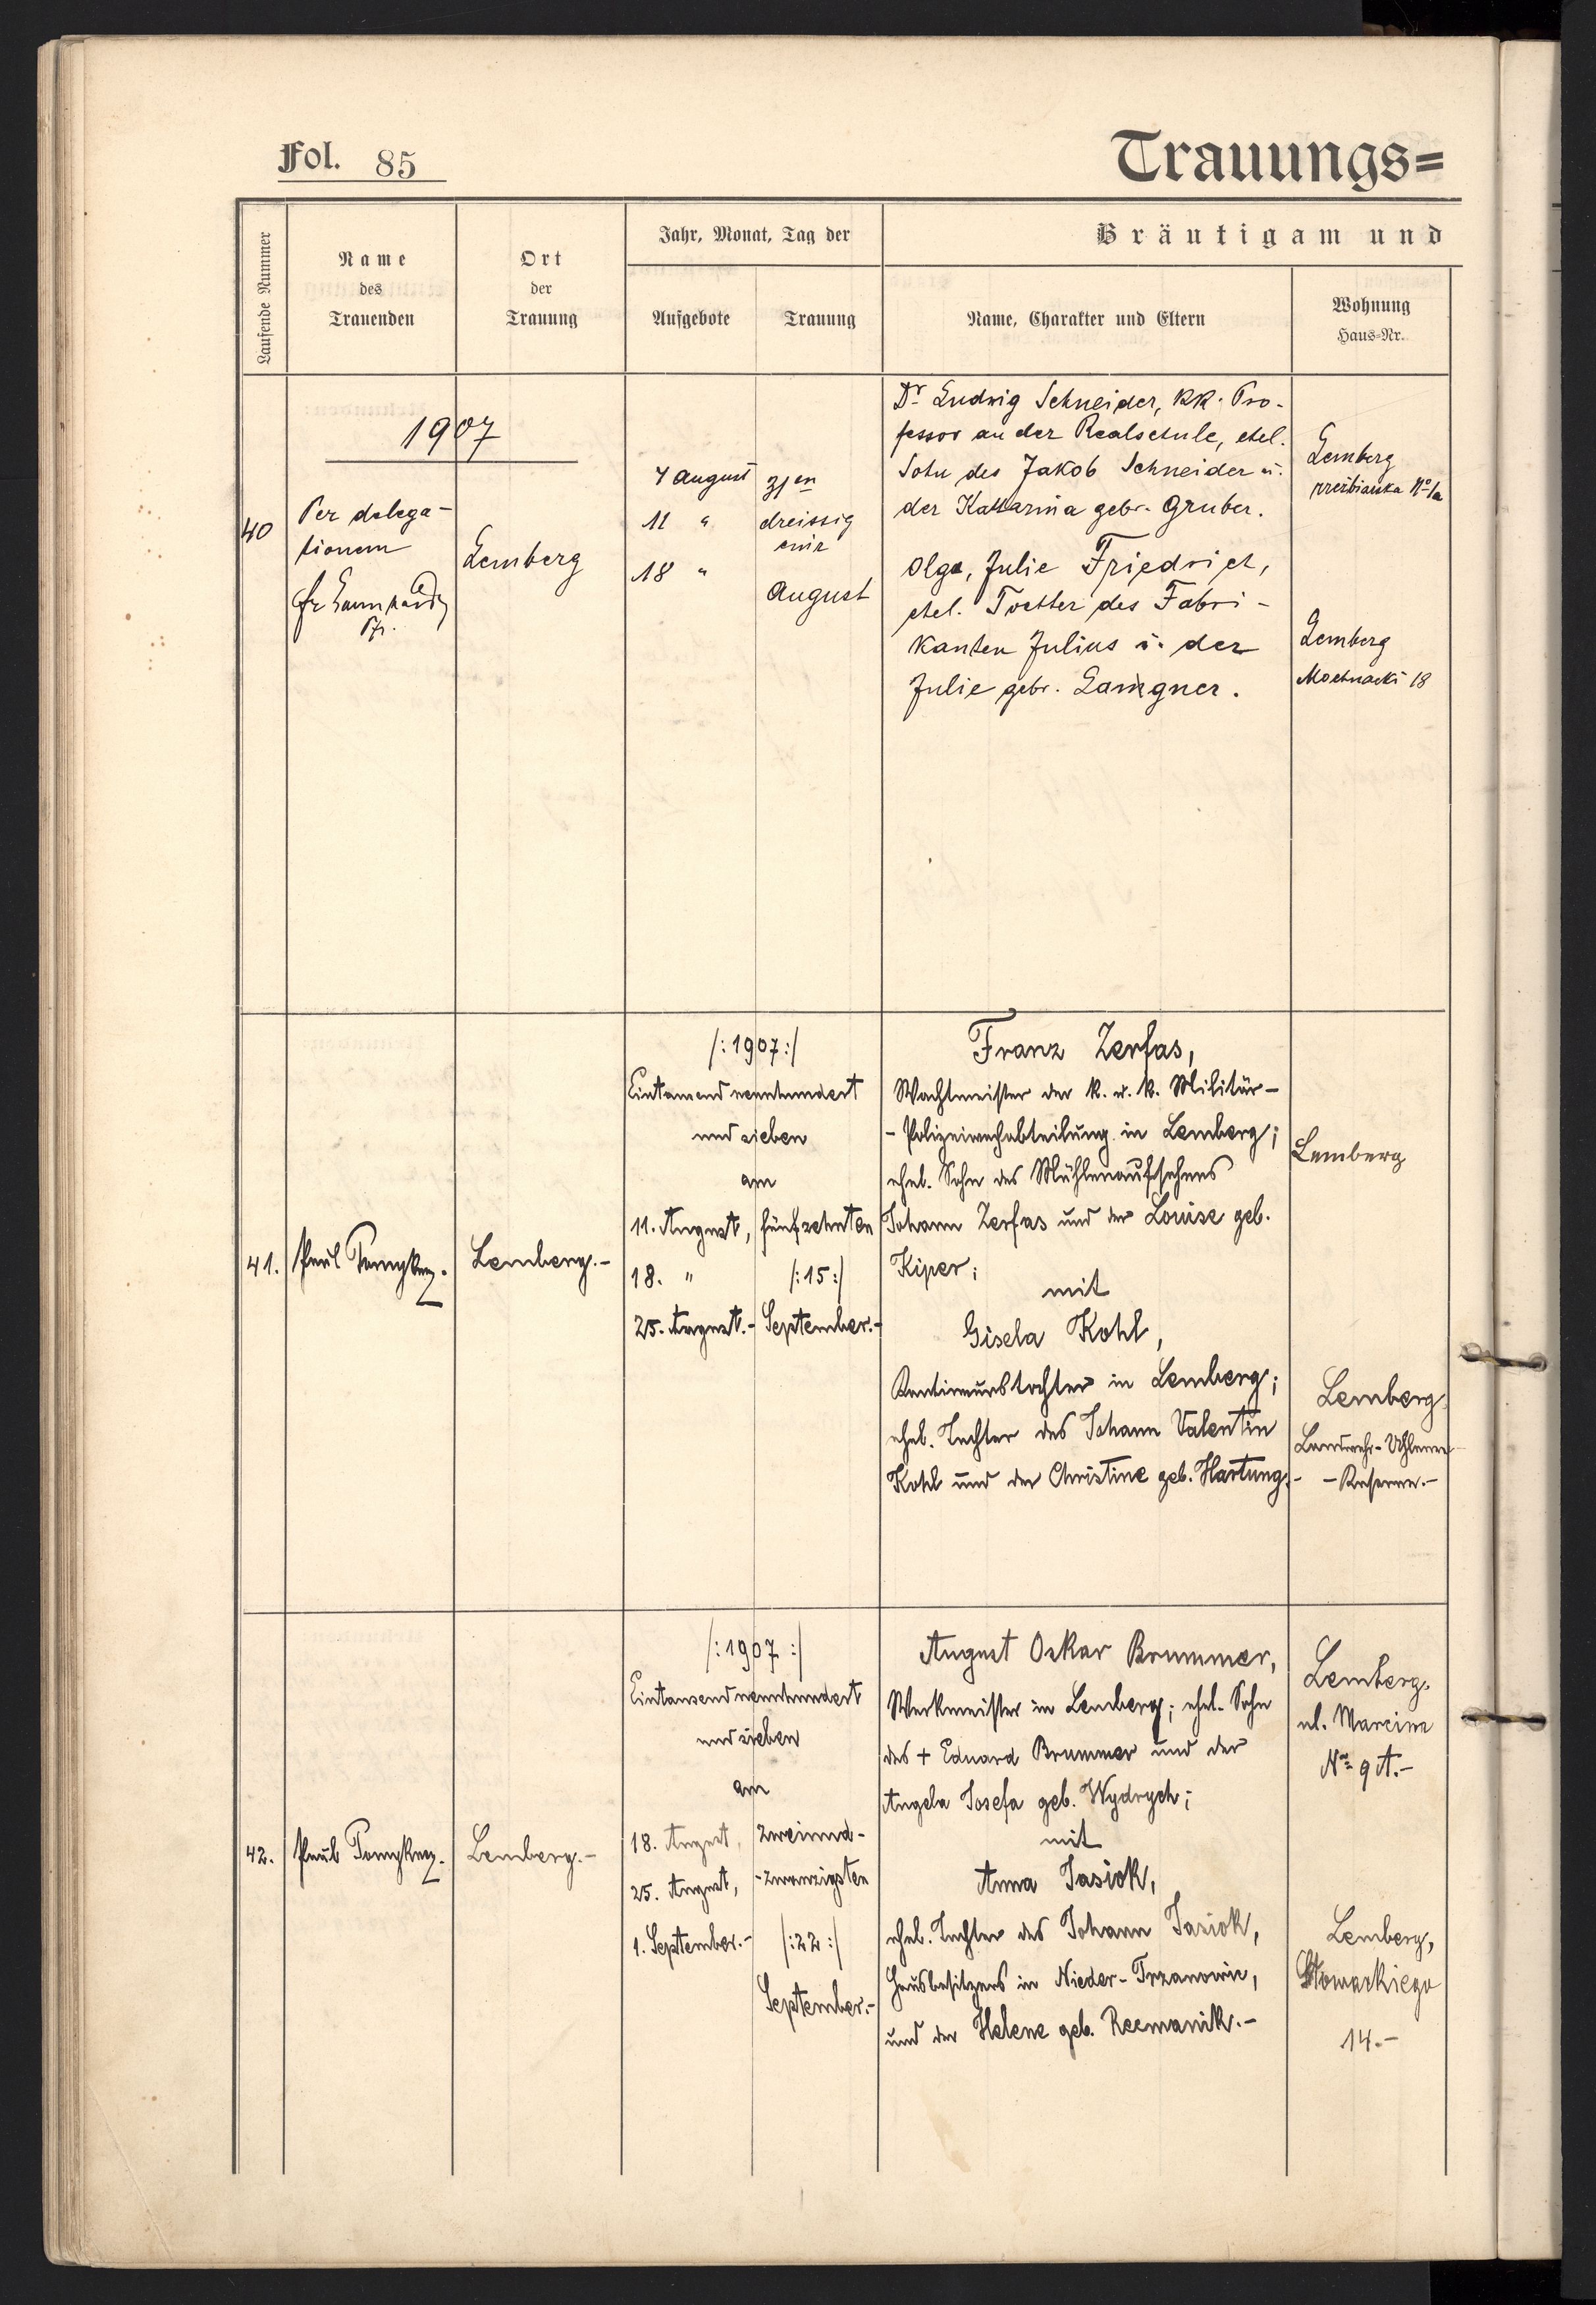 Fol. 85
Trauungs=
Laufende Nummer
Name
des
Trauenden
Ort
der
Trauung
Jahr, Monat, Tag der
Aufgebote
Trauung
Bräutigam und
Name, Charakter und Eltern
Wohnung
Haus-Nr.
1907
40
Per delega-
tionem
Pfr.
Lemberg
4 August
11 "
18 "
31en
dreissig
August
Dr Ludwig Schneider, kk. Pro-
fessor an der Realschule, ehel.
Sohn des Jakob Schneider u.
der Katharina gebr. Gruber.
Olga, Julie Friedrich,
ehel. Tochter des Fabri-
kanten Julius u. der
Julie gebr. Langner.
Lemberg
Lemberg
Mochnacki 18
41.
Paul
Lemberg.-
/:1907:/
Eintausendneunhundert
und sieben
am
11. August,
18. "
25. August.-
fünfzehnten
/:15:/
September.-
Franz Zerfas,
Wachtmeister der k. u. k. Militär-
-Polizeiwachabteilung in Lemberg;
ehel. Sohn des Mühlenaufsehers
Johann Zerfas und der Louise geb.
Kiper;
mit
Gisela Kohl,
Lemberg;
ehel. Tochter des Johann Valentin
Kohl und der Christine geb. Hartung.-
Lemberg
Lemberg
Landwehr-Uhlanen
-Kaserne.-
42.
Paul
Lemberg.-
/:1907:/
Eintausendneunhundert
und sieben
am
18. August,
25. August,
1. September.-
zweiund-
-zwanzigsten
/:22:/
September.-
August Oskar Brummer,
Werkmeister in Lemberg; ehel. Sohn
des + Eduard Brummer und der
Angela Josefa geb. Wydrych;
mit
Anna Jasiok,
ehel. Tochter des Johann Jasiok,
Hausbesitzers in Nieder-Trzanowic,
und der Helene geb. Recmanik.-
Lemberg,
ul. Marcina
No 9 A.-
Lemberg,
14.-